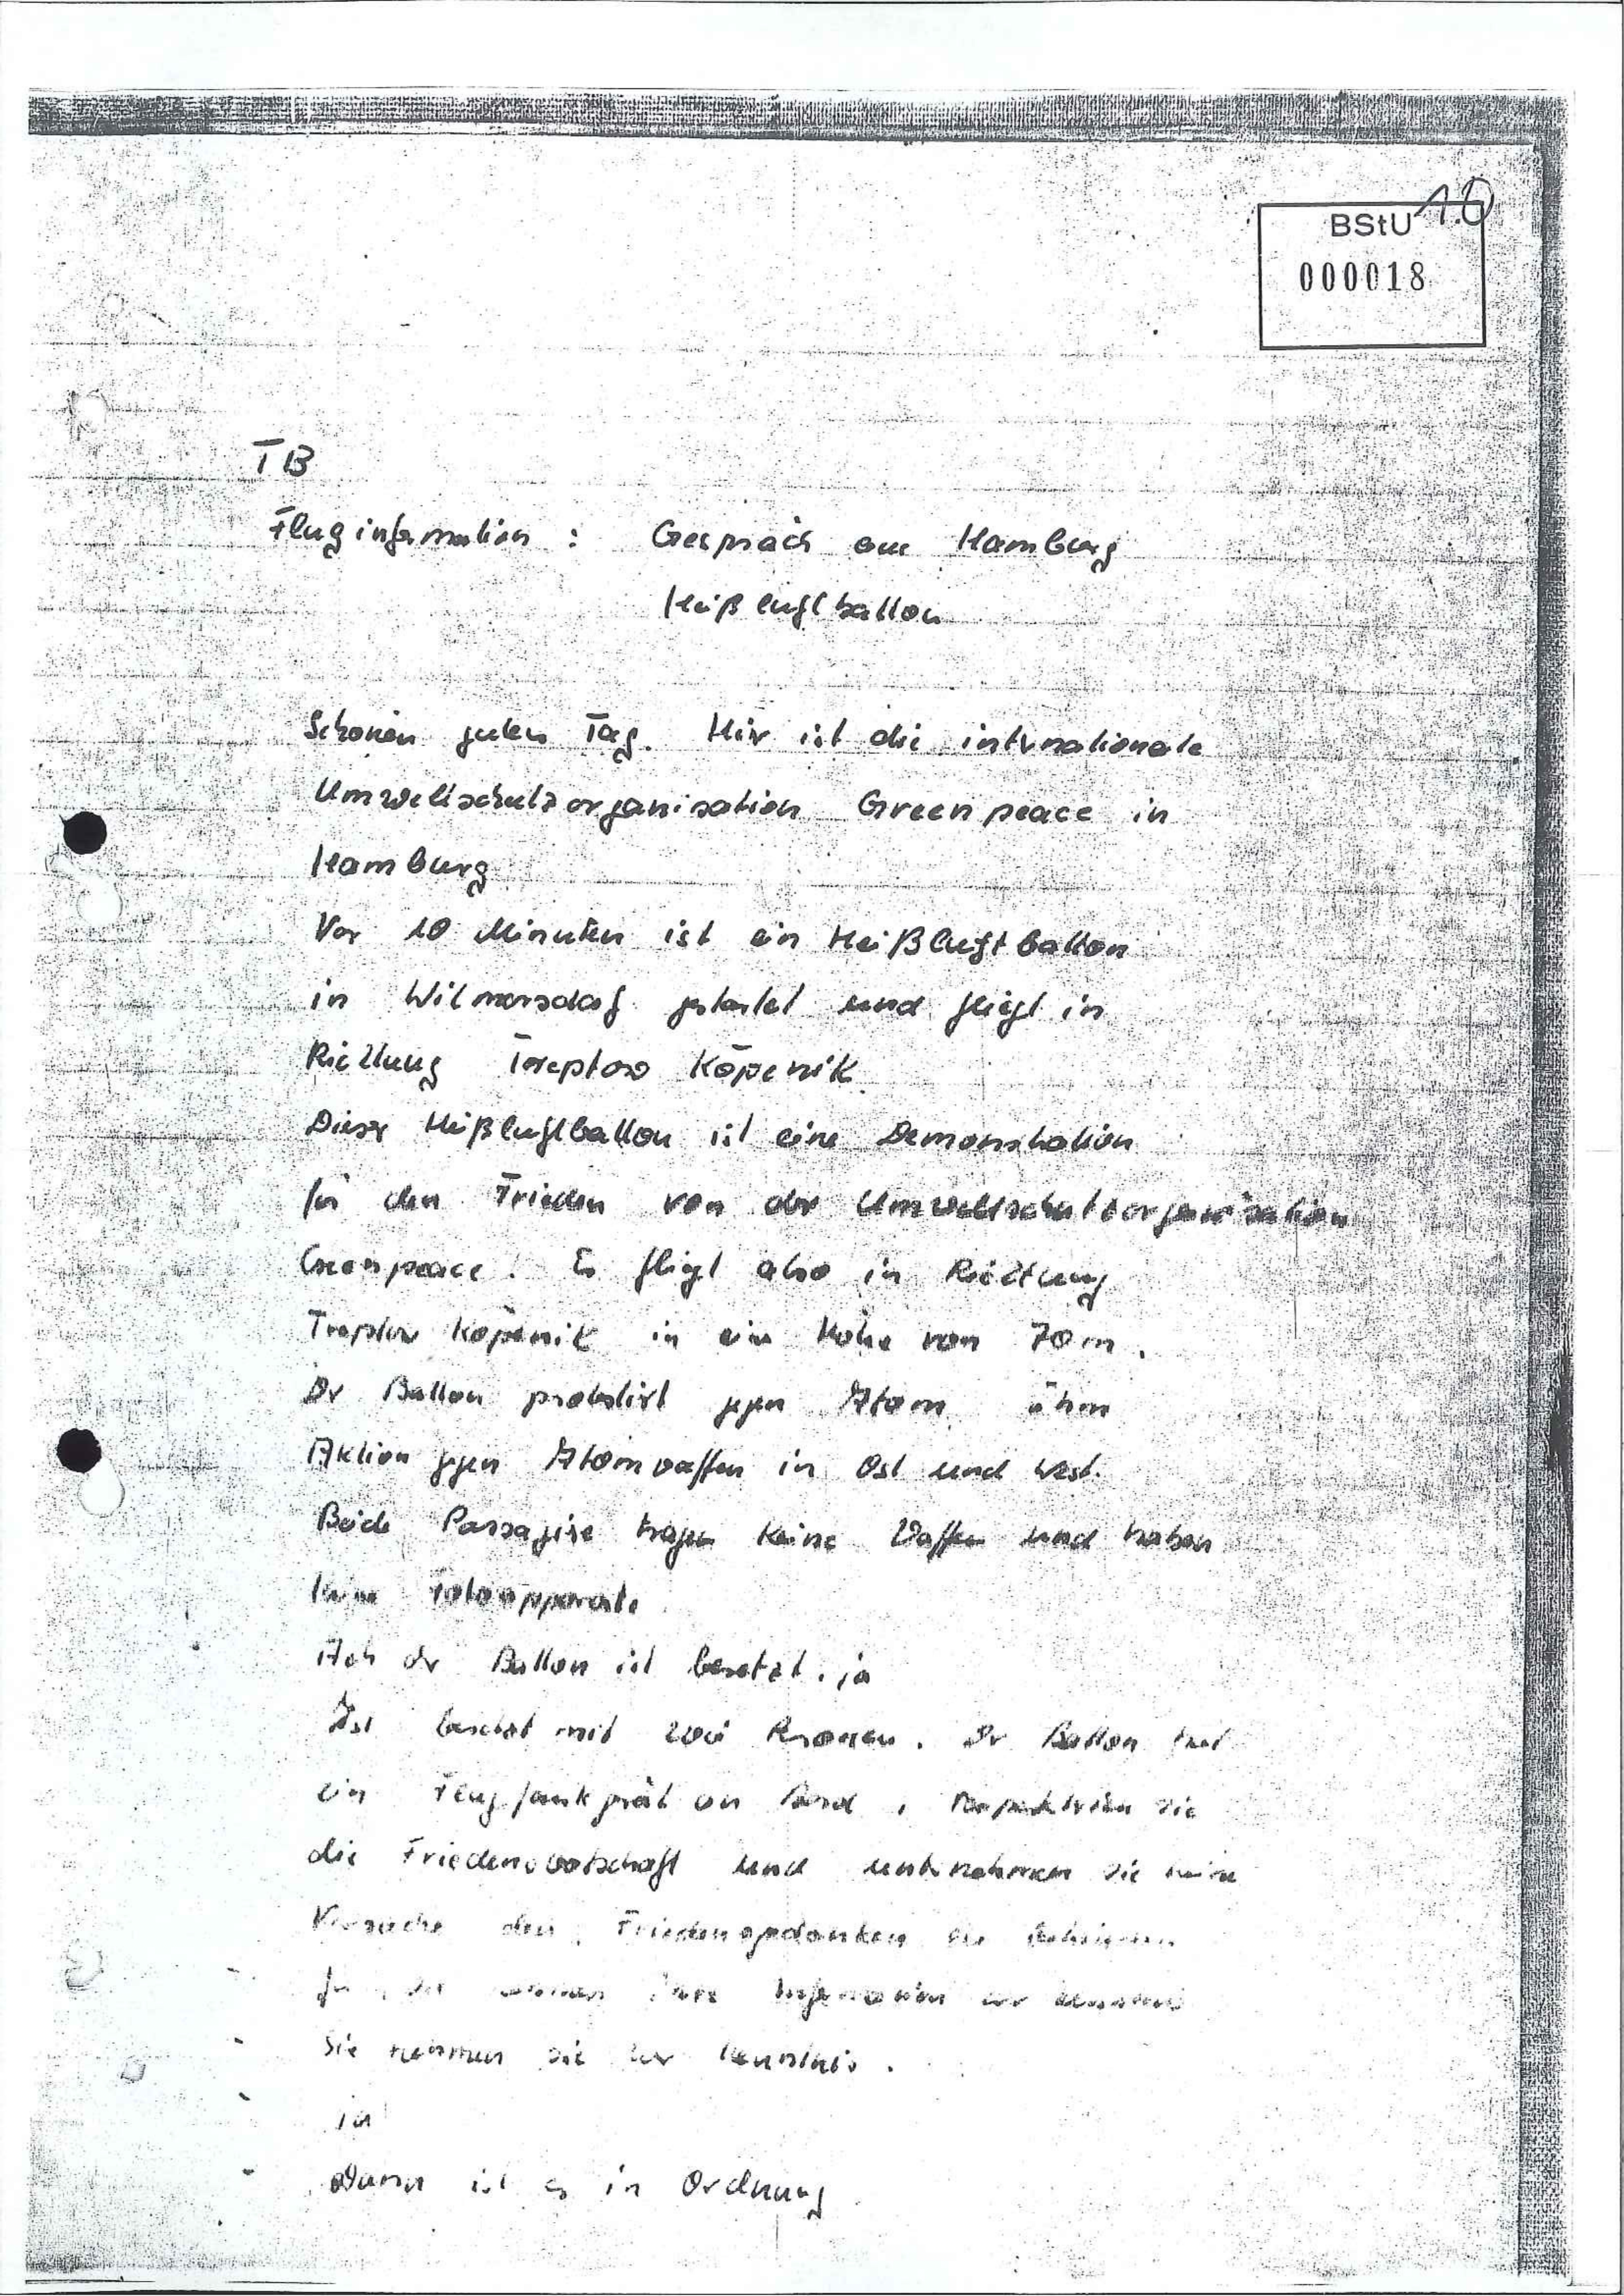 10
BStU
000018
TB
Fluginformation : Gespräch aus Hamburg
Heißluftballon
Schönen guten Tag. Hier ist die internationale
Umweltschutzorganisation Greenpeace in
Hamburg
Vor 10 Minuten ist ein Heißluftballon
in Wilmersdorf gestartet und fliegt in
Richtung Treptow Köpenik
Dieser Heißluftballon ist eine Demonstration
für den Frieden von der Umweltschutzorganisation
Greenpeace. Er fliegt also in Richtung
Treptow Köpenik in ein Höhe von 70 m.
Der Ballon protestiert gegen Atom ähm
Aktion gegen Atomwaffen in Ost und West.
Beide Passagiere tragen keine Waffen und haben
keine Fotoapparate
Ach der Ballon ist besetzt. ja
Ist besetzt mit zwei Personen. Der Ballon hat
ein Flugfunkgerät an Bord, respektieren Sie
die Friedensbotschaft und unternehmen Sie keine
Versuche den Friedensgedanken zu
- Ja, wir nehmen Ihre Information zur Kenntnis
- Sie nehmen sie zur Kenntnis.
- ja
- Dann ist es in Ordnung